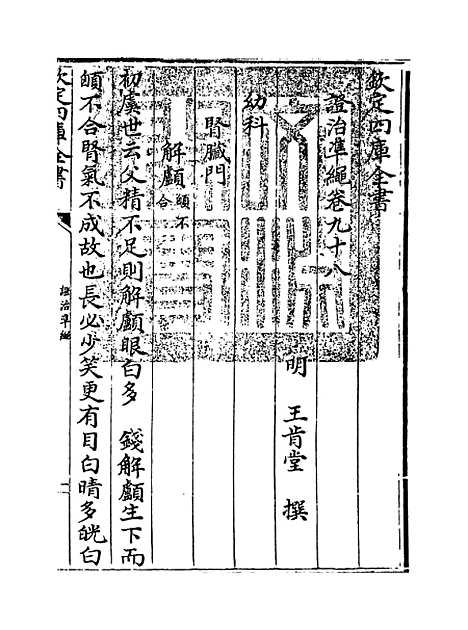 欽定四庫全書
證治準繩卷九十八
明 王肯堂 撰
幼科
腎臟門
解顱 顱不合
初虞世云父精不足則解顱眼白多 錢解顱生下而
顱不合腎氣不成故也長必少笑更有目白睛多㿠白
欽定四庫全書
證治準繩